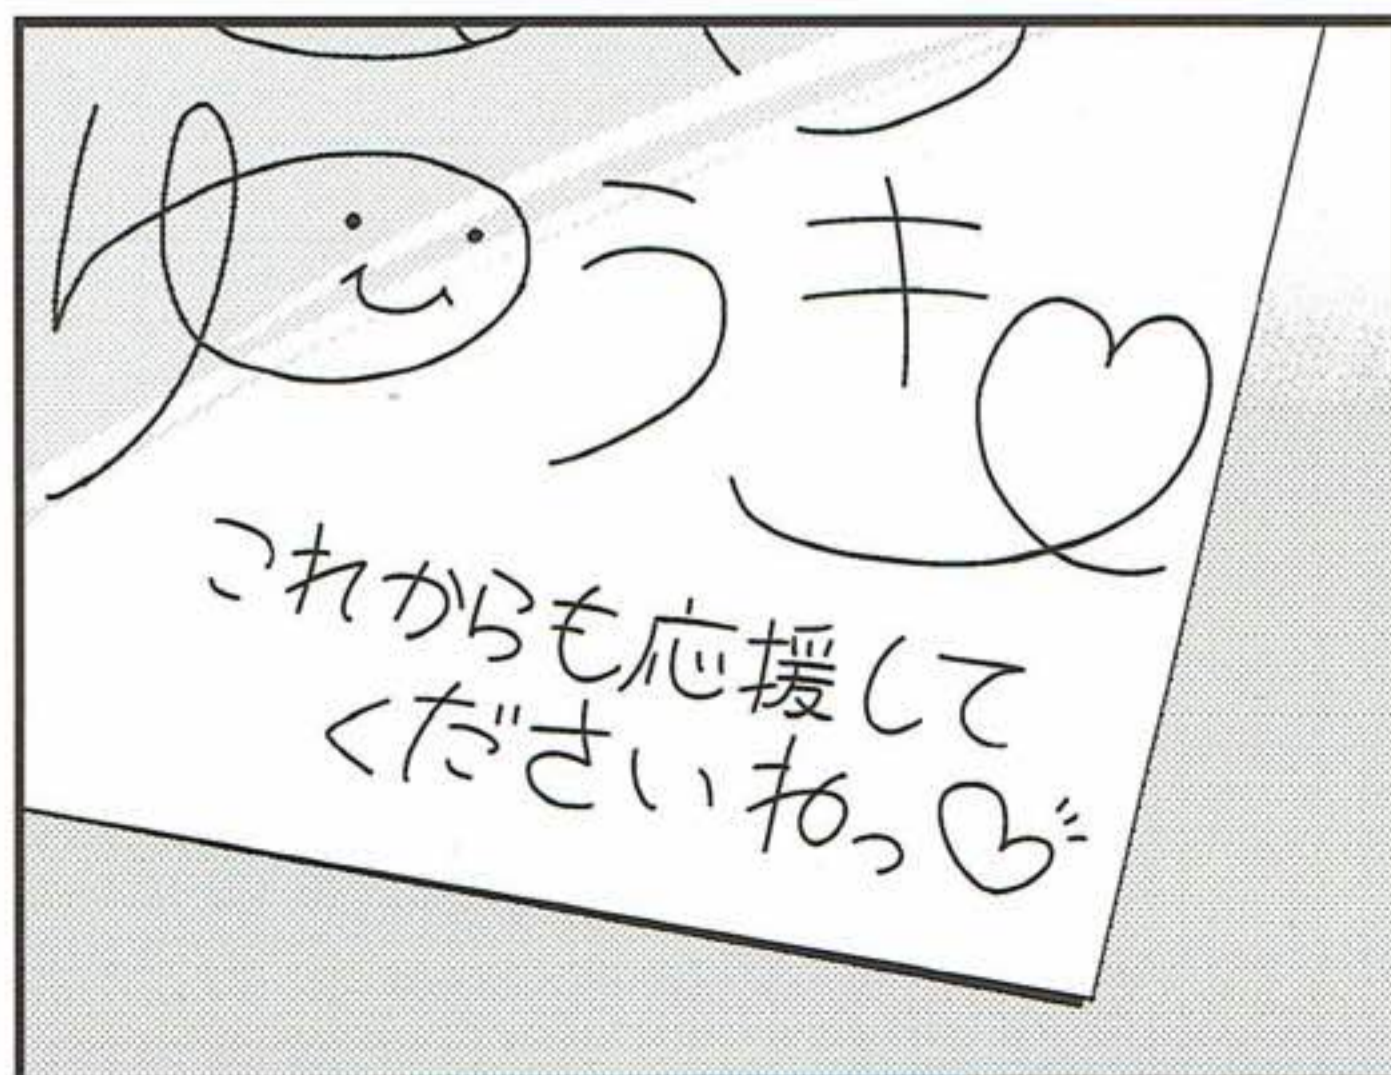 ゆうき
これからも応援して
くださいねっ♡